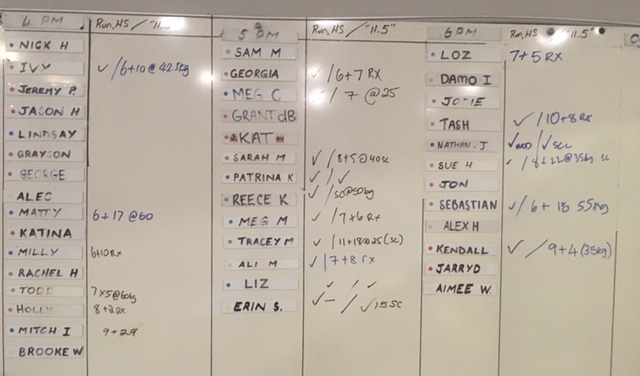 4 PM Run, HS / "11.5"
NICK H
IVY ✓ / 6+10 @ 42.5kg
JEREMY P.
JASON H
LINDSAY
GRAYSON
GEORGE
ALEC
MATTY 6+17 @60
KATINA
MILLY 6+10 RX
RACHEL H
TODD 7x5@60kg
HOLLY 8+2 RX
MITCH I 9+29
BROOKE W
5 PM Run, HS / "11.5"
SAM M
GEORGIA ✓ / 6+7 RX
MEG C ✓ / 7 @25
GRANT dB
KAT
SARAH M ✓ / 8+5@40sc
PATRINA K ✓ / ✓
REECE K ✓ / sc@50kg
MEG M ✓ / 7+6 Rx
TRACEY M ✓ / 11+18@25 (sc)
ALI M ✓ / 7+8 rx
LIZ ✓ / ✓
ERIN S. ✓ – / ✓ 15 SC
6 PM Run, HS "11.5"
LOZ 7+5 RX
DAMO I
JODIE
TASH ✓ / 10+8 Rx
NATHAN. J ✓ MOD / ✓ SCC
SUE H ✓ / 8+22@35kg sc
JON
SEBASTIAN ✓ / 6+18 55kg
ALEX H
KENDALL ✓ / 9+4 (35kg)
JARRYD
AIMEE W.